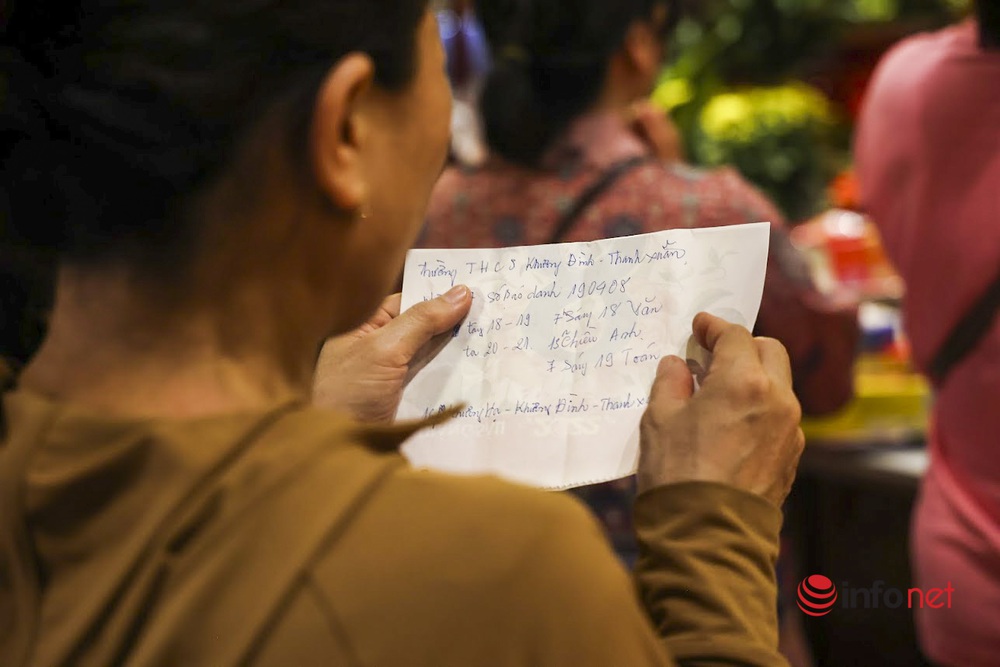 Trường THCS Khương Đình - Thanh xuân
Số báo danh 190408
18 - 19 7h Sáng 18 Văn
20 - 21. 15h Chiều Anh
7h Sáng 19 Toán
Hạ - Khương Đình - Thanh
infonet